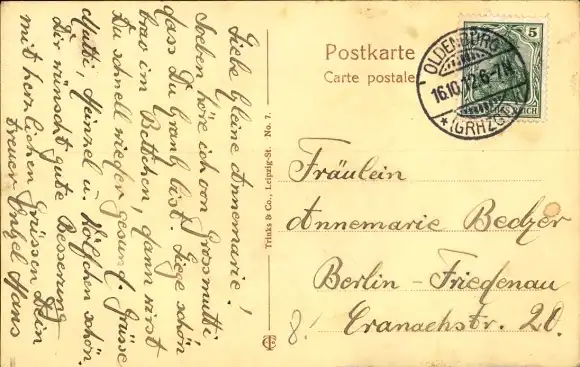 Liebe kleine Annemarie!
Soeben höre ich von Grossmutti
dass Du krank bist. Liege schön
brav im Bettchen, dann wirst
Du schnell wieder gesund. Grüsse
Mutti, Heinzel u. Wölfchen schön.
Dir wünscht gute Besserung
mit herzlichen Grüssen Dein
treuer Onkel Hans
Trinks & Co., Leipzig-St. No. 7.
Postkarte
Carte postale
OLDENBURG
16.10.12.6-7N
*(GRHZGT.)
5
REICH
Fräulein
Annemarie Bedzer
Berlin - Friedenau
Cranachstr. 20.
8!